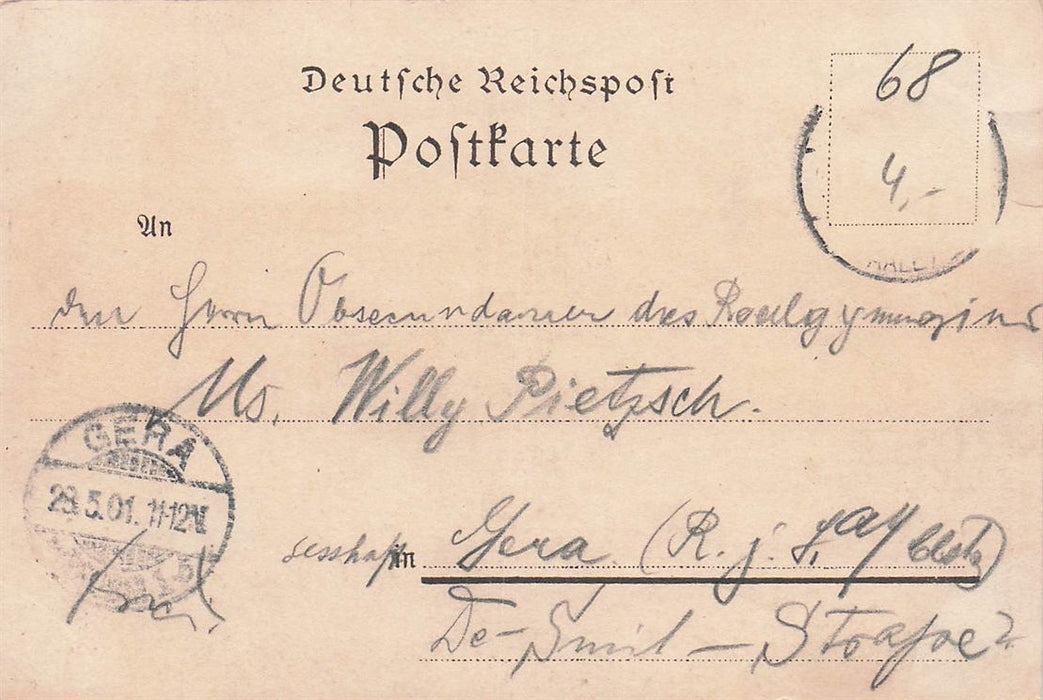 Deutsche Reichspost
Postkarte
68
4,-
An
den Herrn Obsecundaner des Realgymnasiums
Ms. Willy Pietzsch.
GERA
28.5.01. 11-12V.
sesshaft in Gera (R. j. L.
Straße 2